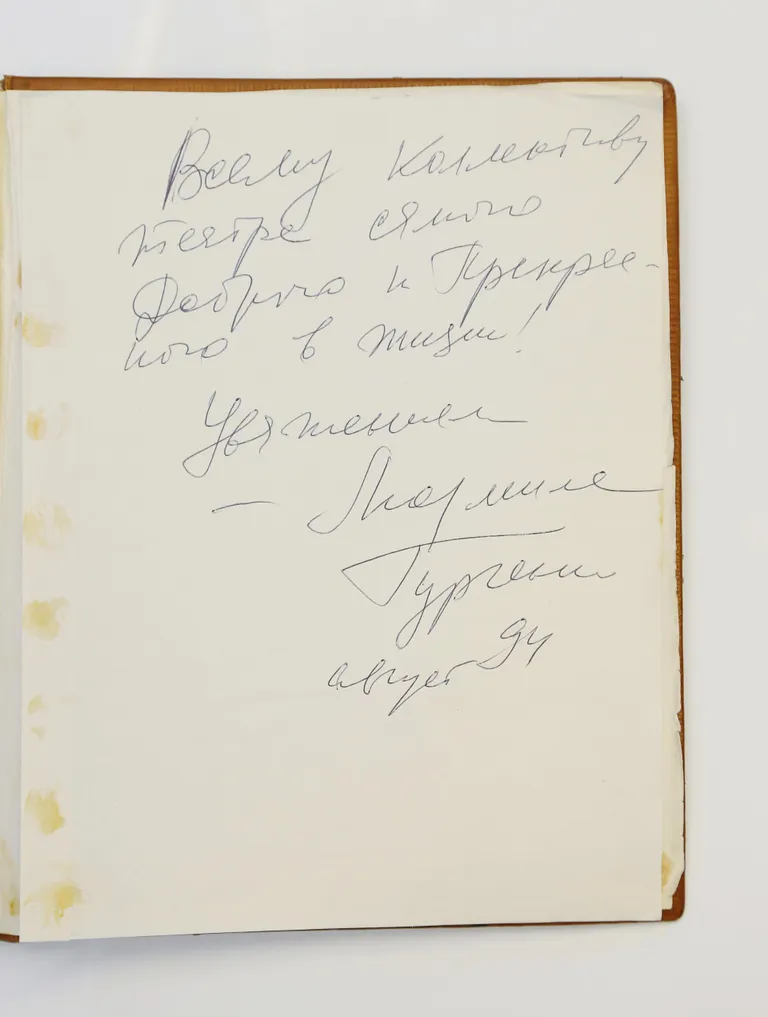 Всему Коллективу
театра самого
Доброго и Прекрас-
ного в жизни!
Уважением
— Людмила
Гурченко
август 94